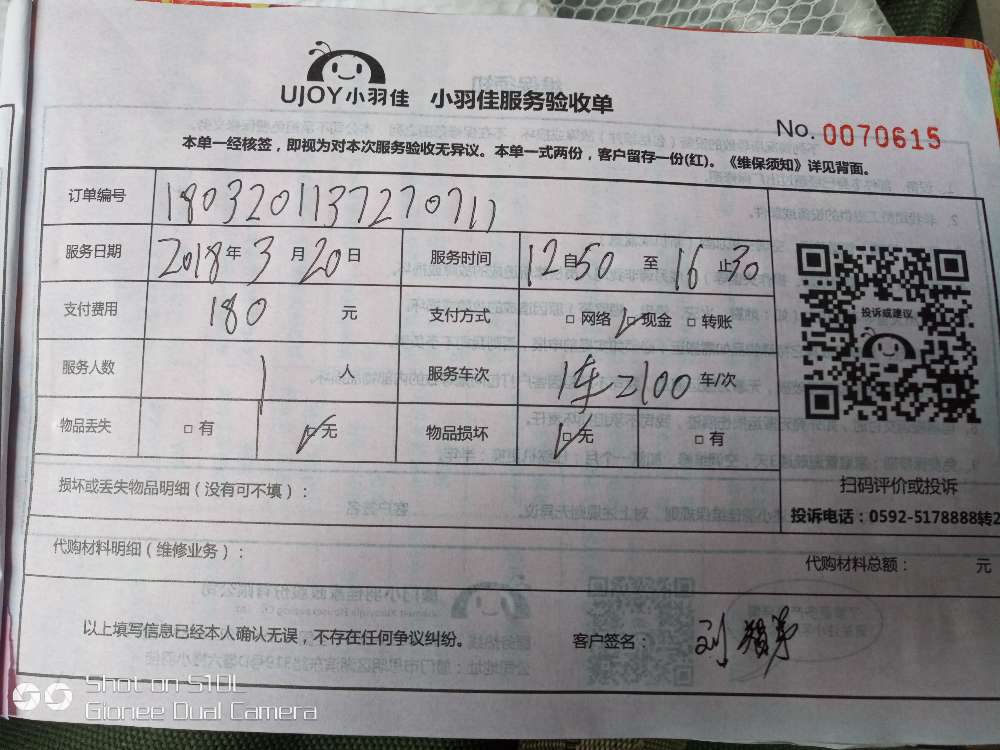 UJOY小羽佳 小羽佳服务验收单
No. 0070615
本单一经核签，即视为对本次服务验收无异议。本单一式两份，客户留存一份(红)。《维保须知》详见背面。
订单编号 180320113727071
服务日期 2018年3月20日 服务时间 12自50至16止30
支付费用 180 元 支付方式 □网络 □现金 □转账
服务人数 1 人 服务车次 1车 2100 车/次
物品丢失 □有 □无 物品损坏 □无 □有
投诉或建议
扫码评价或投诉
损坏或丢失物品明细（没有可不填）：
投诉电话：0592-5178888转2
代购材料明细（维修业务）：
代购材料总额： 元
以上填写信息已经本人确认无误，不存在任何争议纠纷。 客户签名： 刘
Shot on S10L
Gionee Dual Camera